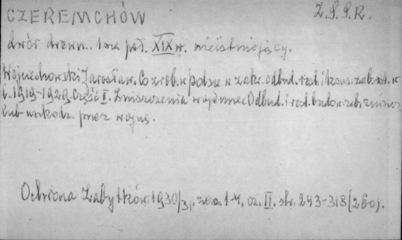 CZEREMCHÓW Z.S.S.R.
dwór drewn. 1sza poł. XIX w. nieistniejący.
Wojciechowski Jarosław. Co zrob. w Polsce w zakr. odbud. rest. i konserw. zabytk. w
l. 1919-1929. Część I. Zniszczenia wojenne. Odbud. i rest. budow. zabz. zniszcz.
lub uszkodz. przez wojnę.
Ochrona Zabytków. 1930/31, zesz. 1-4, cz. II. str. 243-318 (260).